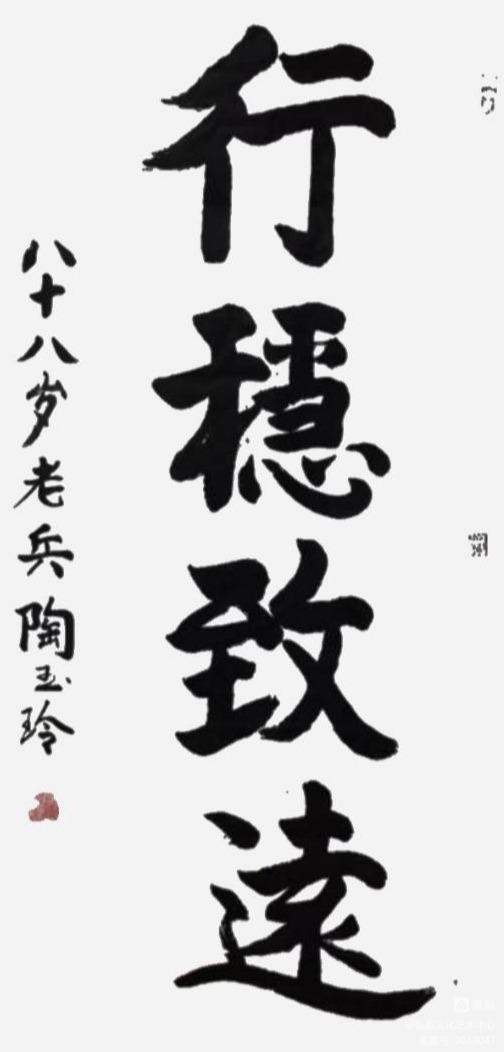 行穩致遠
八十八岁老兵陶玉玲